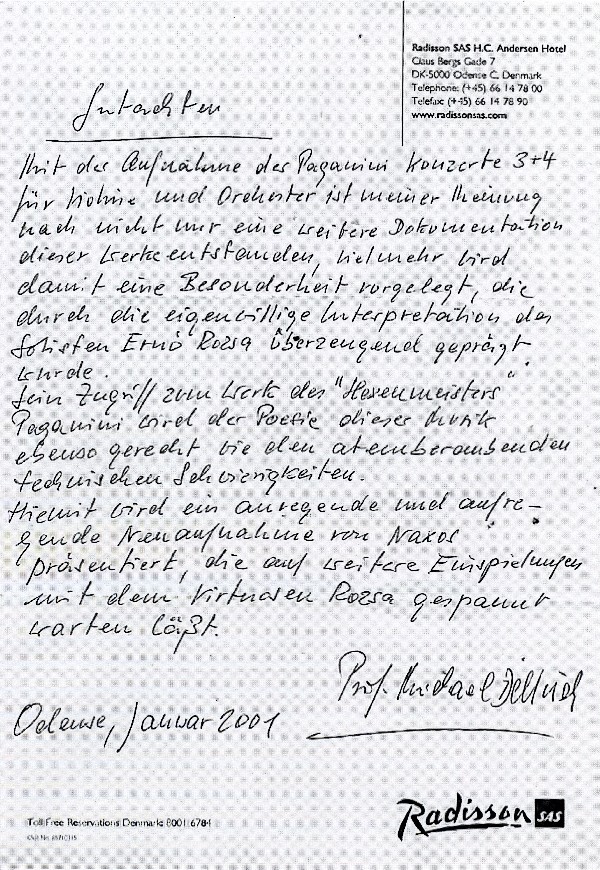 Radisson SAS H.C. Andersen Hotel
Claus Bergs Gade 7
DK-5000 Odense C, Denmark
Telephone: (+45) 66 14 78 00
Telefax: (+45) 66 14 78 90
www.radissonsas.com
Gutachten
Mit der Aufnahme der Paganini Konzerte 3+4
für Violine und Orchester ist meiner Meinung
nach nicht nur eine weitere Dokumentation
dieser Werke entstanden, vielmehr wird
damit eine Besonderheit vorgelegt, die
durch die eigenwillige Interpretation des
Solisten Ernö Rozsa überzeugend geprägt
wurde.
Sein Zugriff zum Werk des "Hexenmeisters"
Paganini wird der Poesie dieser Musik
ebenso gerecht wie den atemberaubenden
technischen Schwierigkeiten.
Hiemit wird ein anregende und aufre-
gende Neuaufnahme von Naxos
präsentiert, die auf weitere Einspielungen
mit dem Virtuosen Rozsa gespannt
warten läßt.
Prof. Michael
Odense, Januar 2001
Toll Free Reservations Denmark 8001 6784
Radisson SAS